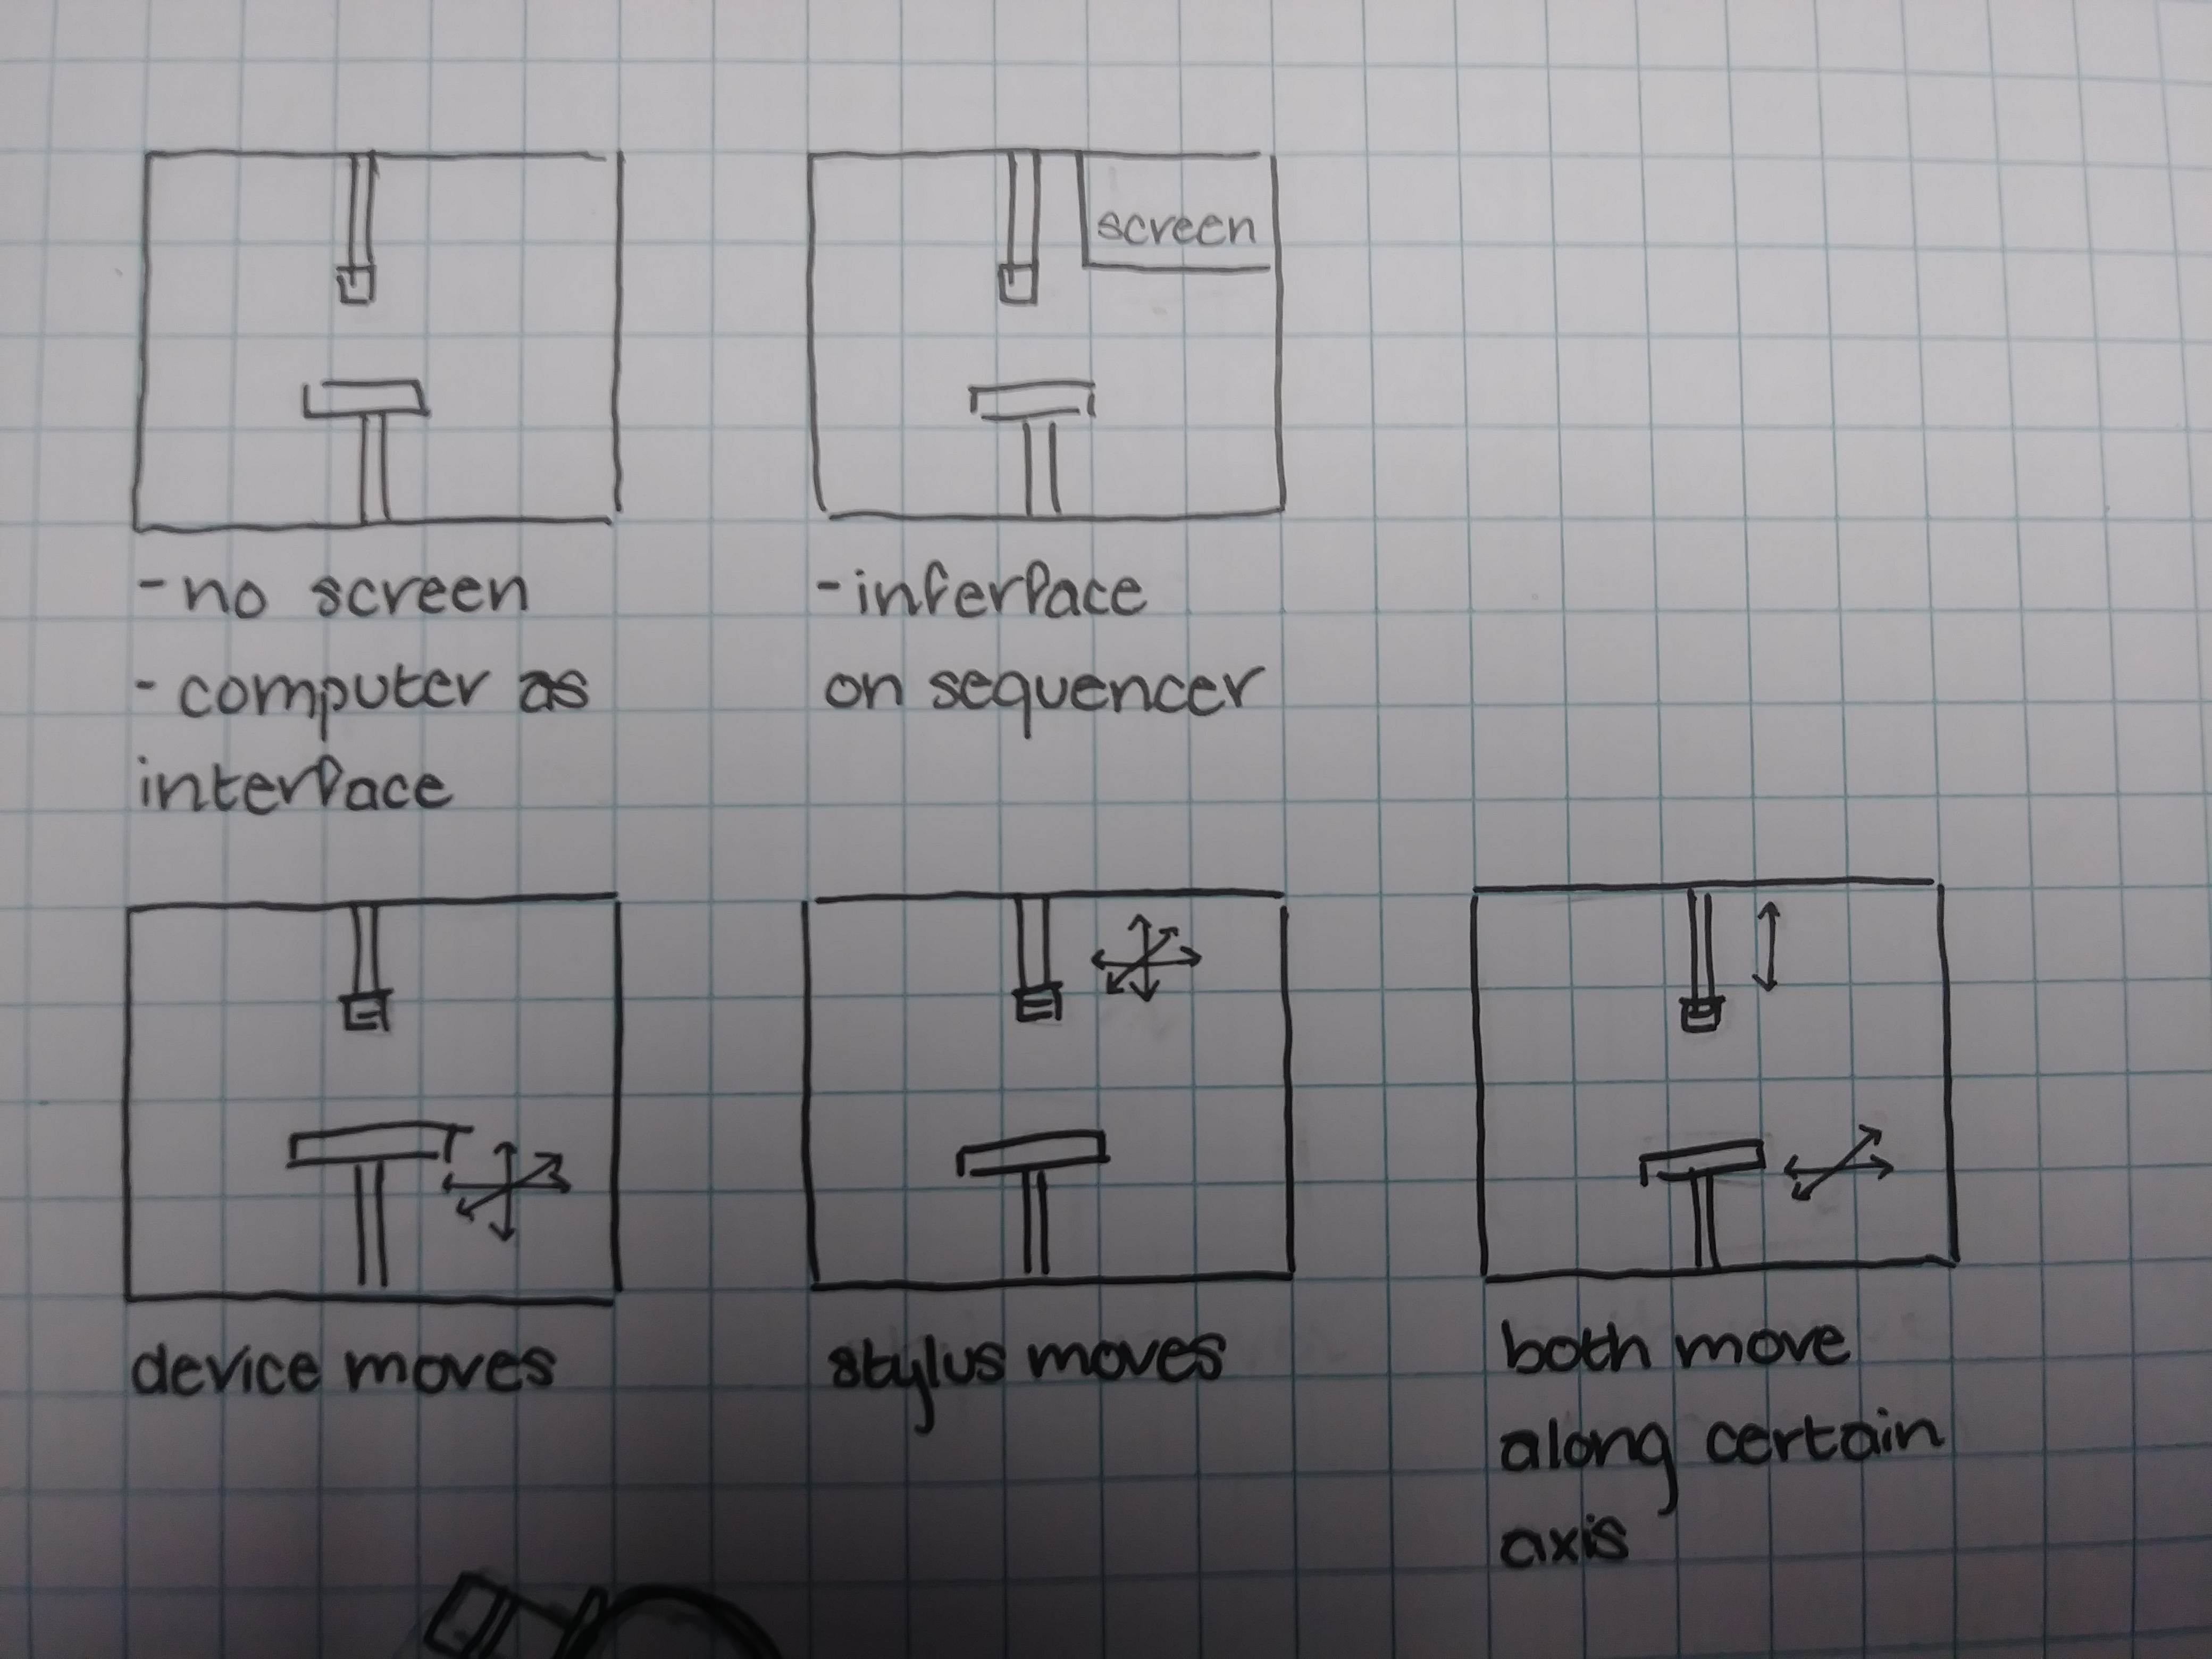 screen
-no screen
-computer as
interface
-interface
on sequencer
device moves
stylus moves
both move
along certain
axis